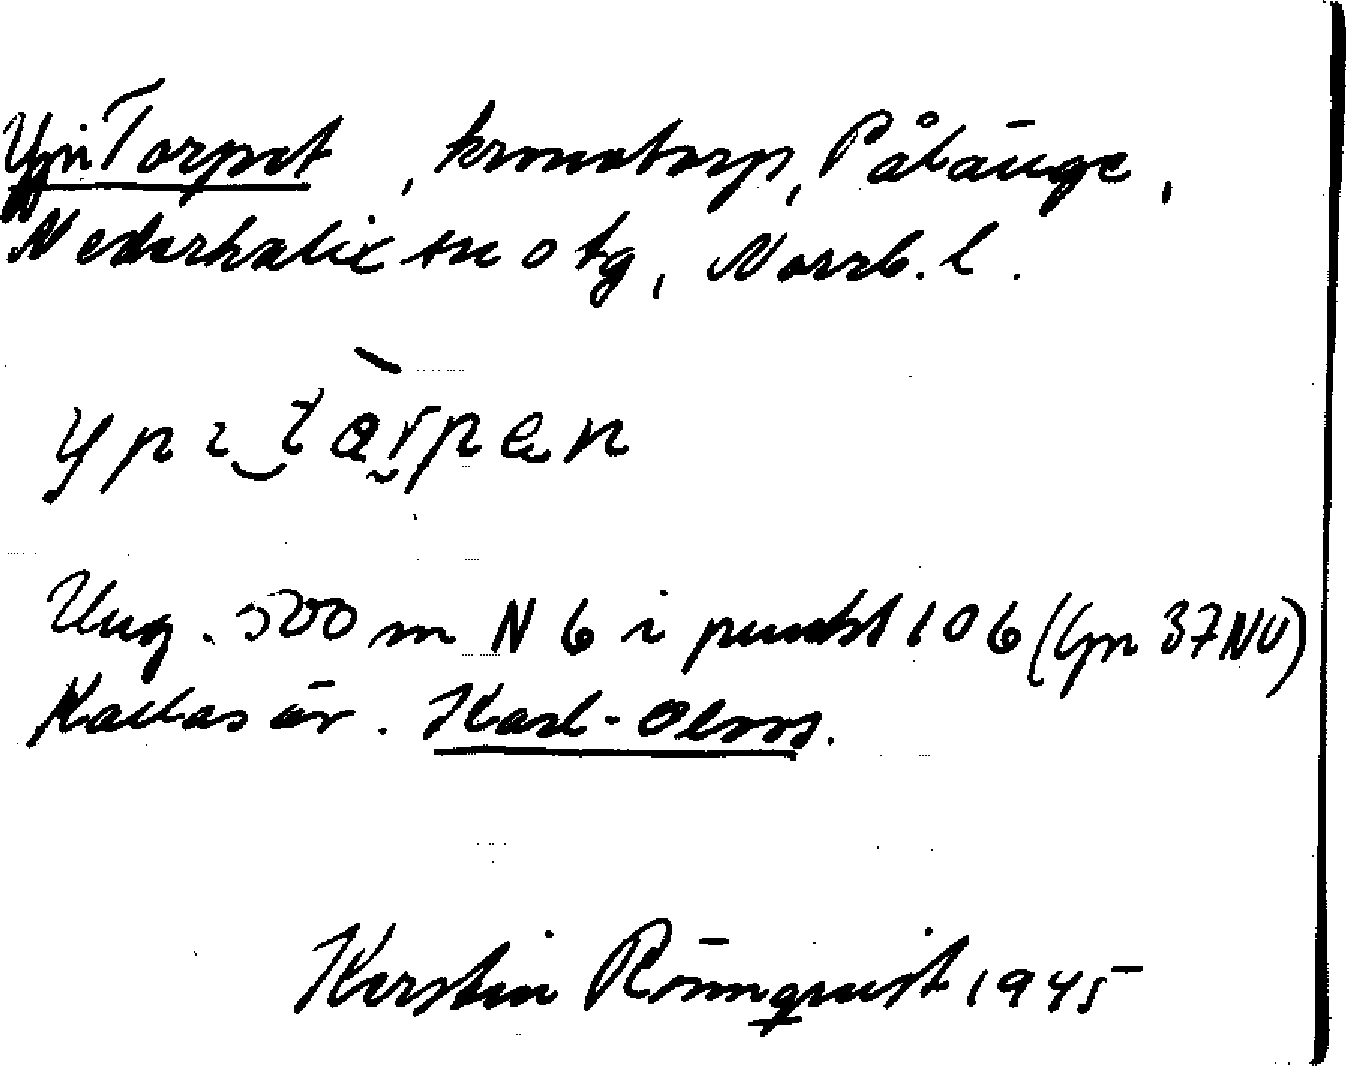 Ypi Torpet, kronotorp, Pålänge,
Nederkalix sn o tg, Norrb. l.
ypi tårpen
Ung. 500 m N 6 i punkt 106 (Gp 37 NV)
Kallas är. Karl-Olsos.
Kerstin Rönnqvist 1945